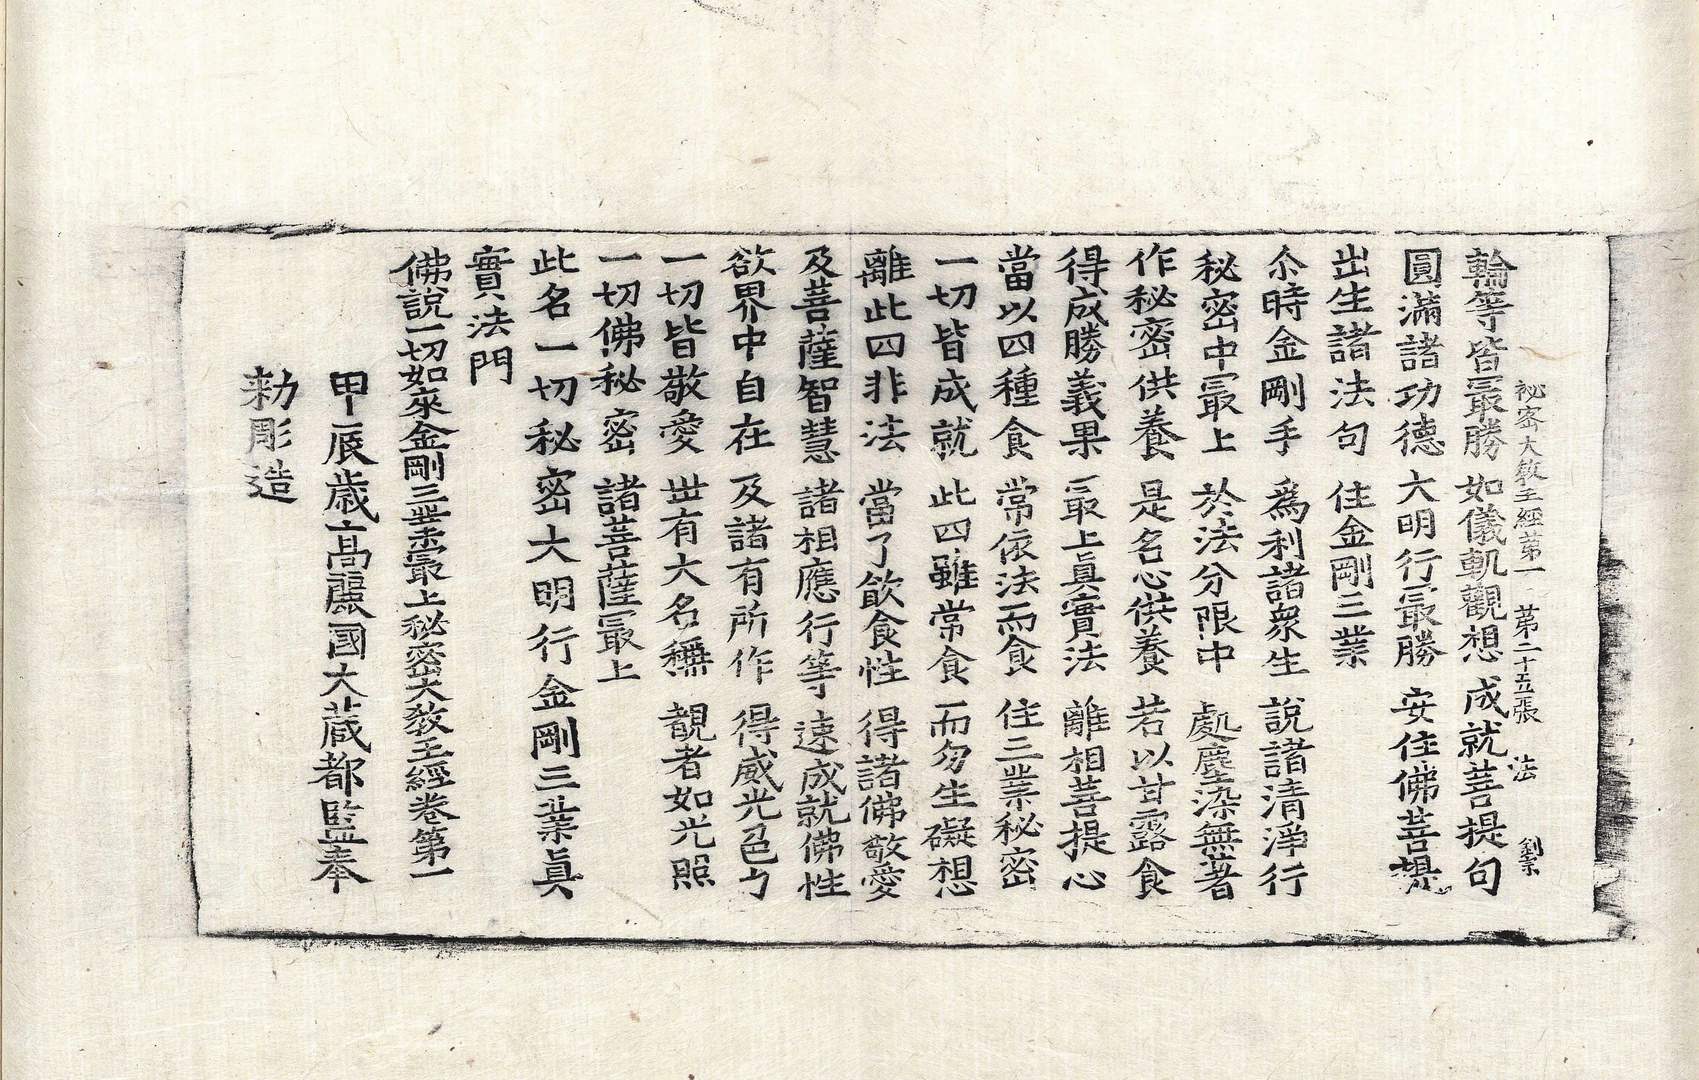 祕密大敎王經第一 第二十五張 法 
輪等皆冣勝 如儀軌觀想 成就菩提句
圓滿諸功德 大明行冣勝 安住佛菩提
出生諸法句 住金剛三業
尒時金剛手 爲利諸衆生 說諸清淨行
秘密中冣上 於法分限中 處塵染無著
作秘密供養 是名心供養 若以甘露食
得成勝義果 冣上眞實法 離相菩提心
當以四種食 常依法而食 住三業秘密
一切皆成就 此四雖常食 而勿生礙想
離此四非法 當了飮食性 得諸佛敬愛
及菩薩智慧 諸相應行等 速成就佛性
欲界中自在 及諸有所作 得威光色力
一切皆敬愛 丗有大名稱 覩者如光照
一切佛秘密 諸菩薩冣上
此名一切秘密大明行金剛三業眞
實法門
佛說一切如來金剛三業冣上秘密大敎王經卷第一
甲辰歲高麗國大藏都監奉
勑彫造